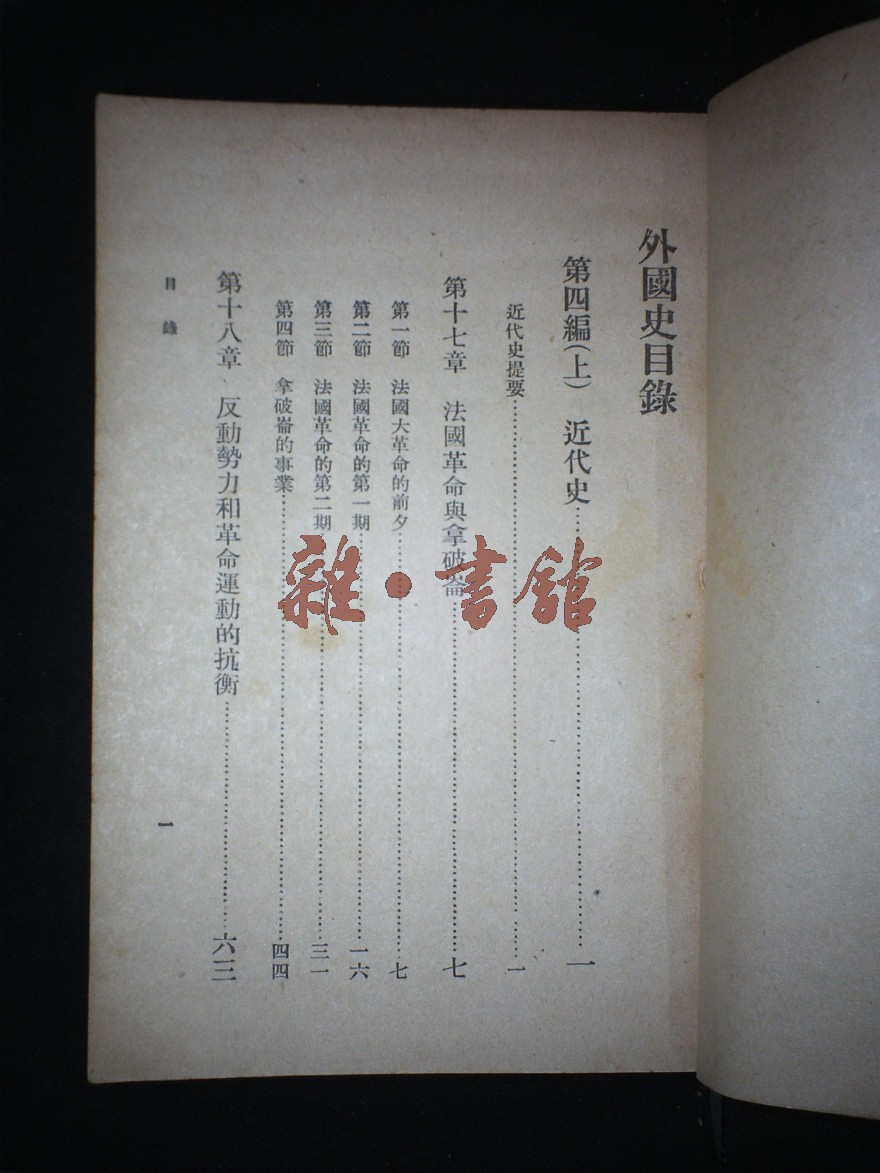 外國史目錄
第四編(上) 近代史……一
近代史提要……一
第十七章 法國革命與拿破崙……七
第一節 法國大革命的前夕……七
第二節 法國革命的第一期……一六
第三節 法國革命的第二期……三一
第四節 拿破崙的事業……四四
第十八章 反動勢力和革命運動的抗衡……六三
目錄
一
雜·書館